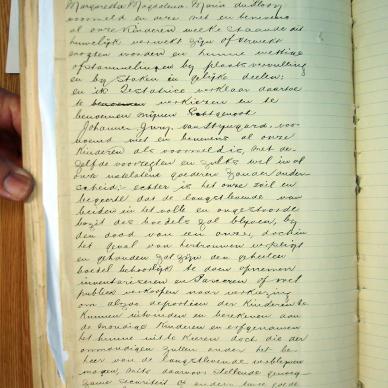 Margaretha Magdalena Maria du Plooy
voormeld en over met en benevens
al onze Kinderen welke staande dit
huwelijk verwekt zijn of verwekt
mogten worden en hunne wettige
afstammelingen by plaatsvervulling
en by Staken in gelijke deelen;
en ik Testatrice verklaar daartoe
te verkiezen en te
benoemen mijnen Echtgenoot
Johannes Jurg. van Stryngard, voor-
noemd met en benevens al onze
Kinderen als voormeld is, met de-
zelfde voorregten en zulks wel in al
onze nalaten goederen zonder onder
scheid; echter is het onze wil en
begeerte dat de langstlevende van
beiden in het volle en ongestoorde
bezit des boedels zal blijven, by
den dood van een onzer, doch in
het geval van hertrouwen verpligt
en gehouden zal zyn den geheelen
boedel behoorlijk te doen opnemen
inventariseren en Taxeren of wel
publiek verkoopen naar verkiezing
om alzoo de portien der Kinderen te
kunnen uitvinden en berekenen aan
de mondige Kinderen en erfgenamen
het hunne uit te keeren doch die der
onmondigen zullen onder het be
heer van de langstlevende verblyven
mogen, mits daarvoor stellende genoeg-
zame securiteit